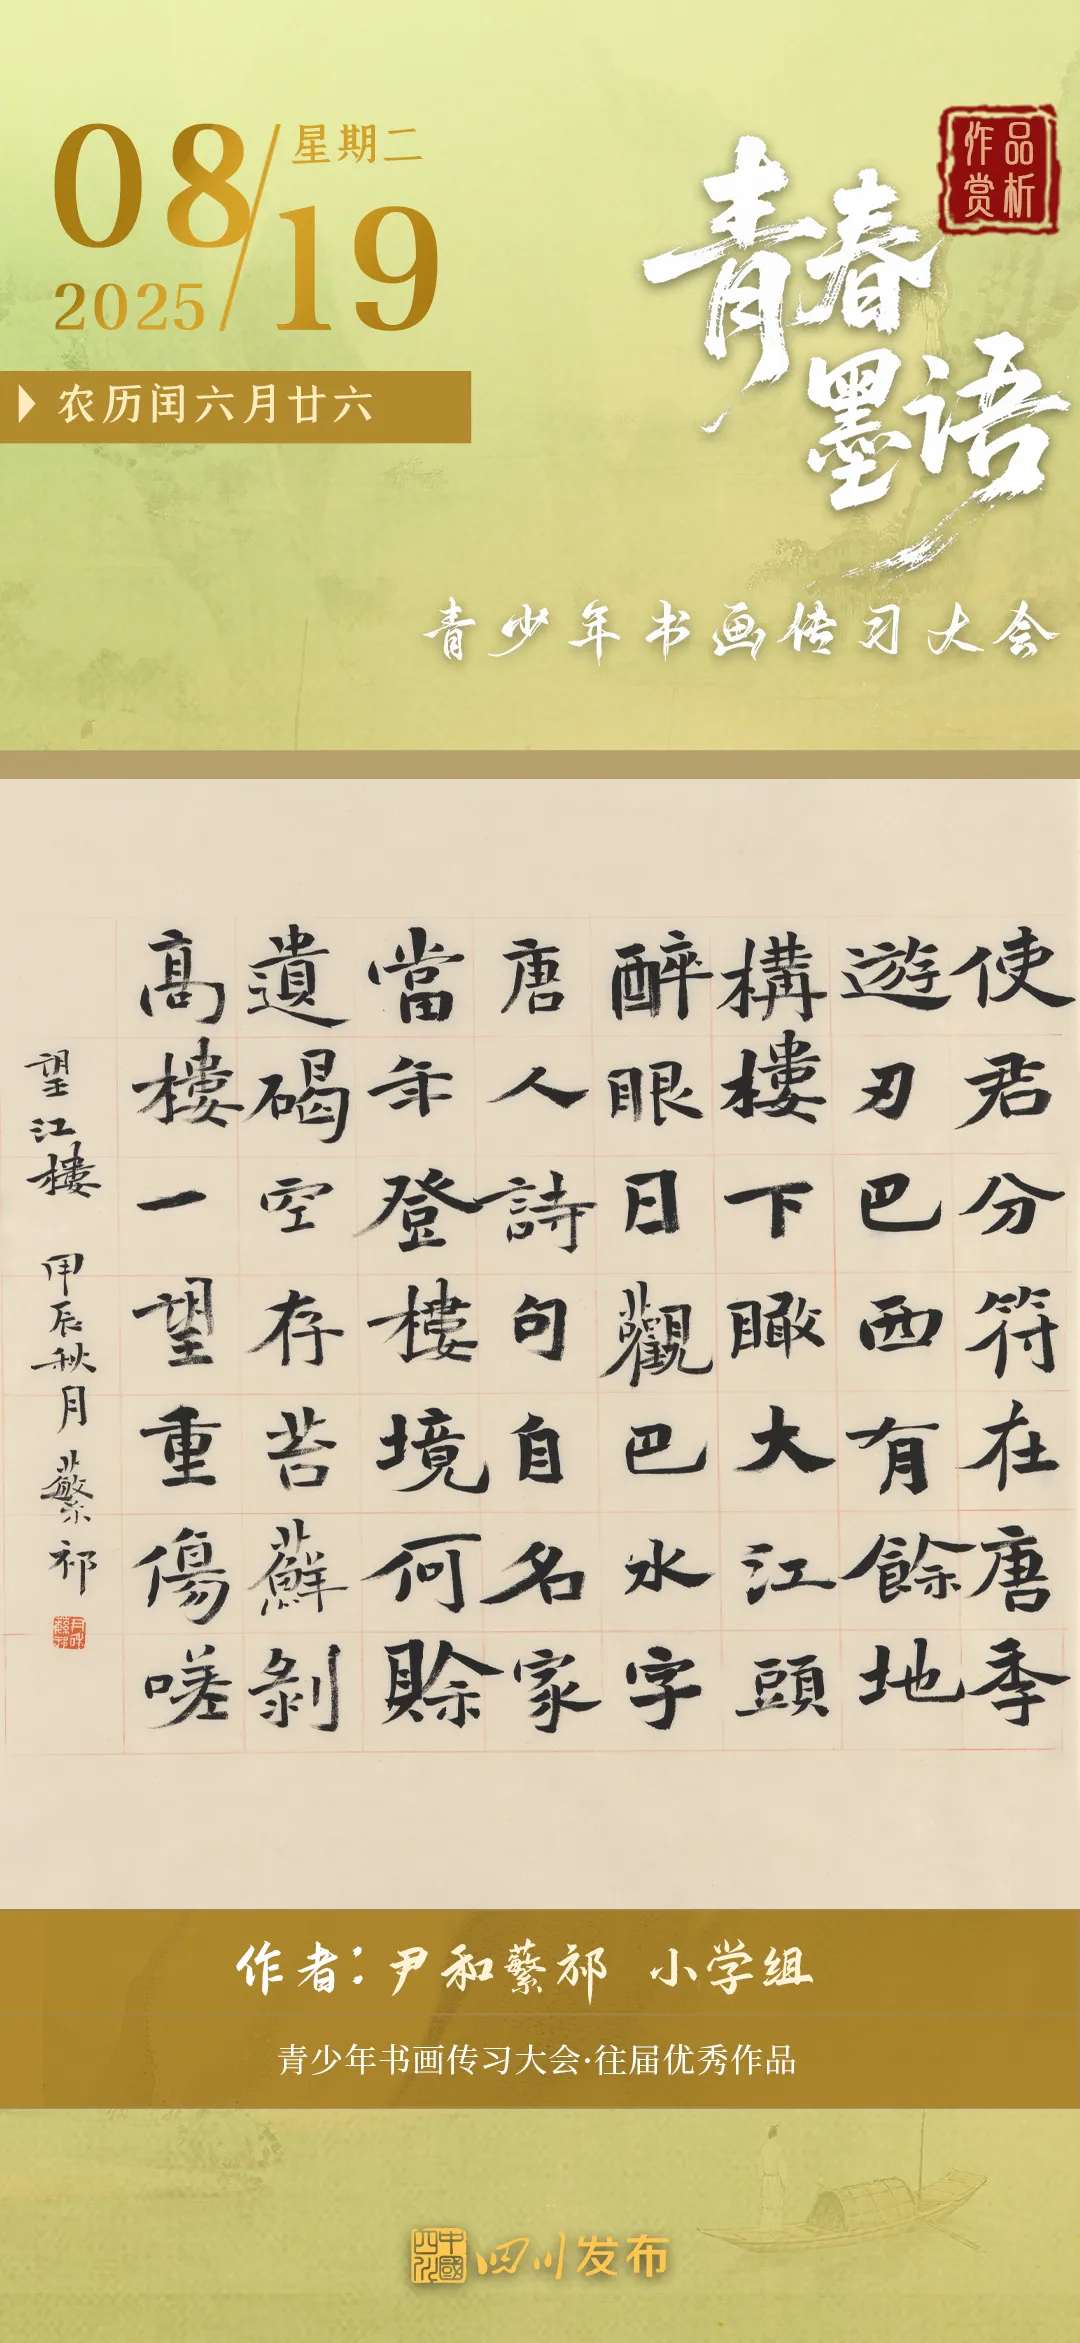 08/19
星期二
2025
农历闰六月廿六
作品
赏析
青春
墨语
青少年书画传习大会
使君分符在唐季
遊刃巴西有餘地
構樓下瞰大江頭
醉眼日觀巴水字
唐人詩句自名家
當年登樓境何賒
遺碣空存苔蘚剝
高樓一望重傷嗟
望江樓 甲辰秋月 蘩祁
作者：尹和蘩祁 小学组
青少年书画传习大会·往届优秀作品
中國
四川
四川发布